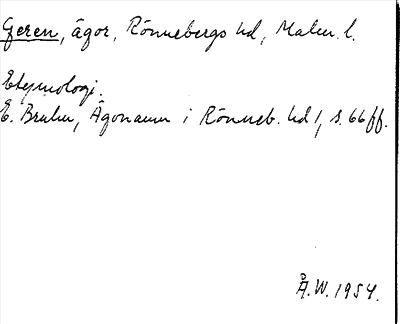 Geren, ägor, Rönnebergs hd, Malm. l.
Etymologi.
E. Bruhn, Ägonamn i Rönneb. hd 1, s. 66 ff.
Å.W. 1954.